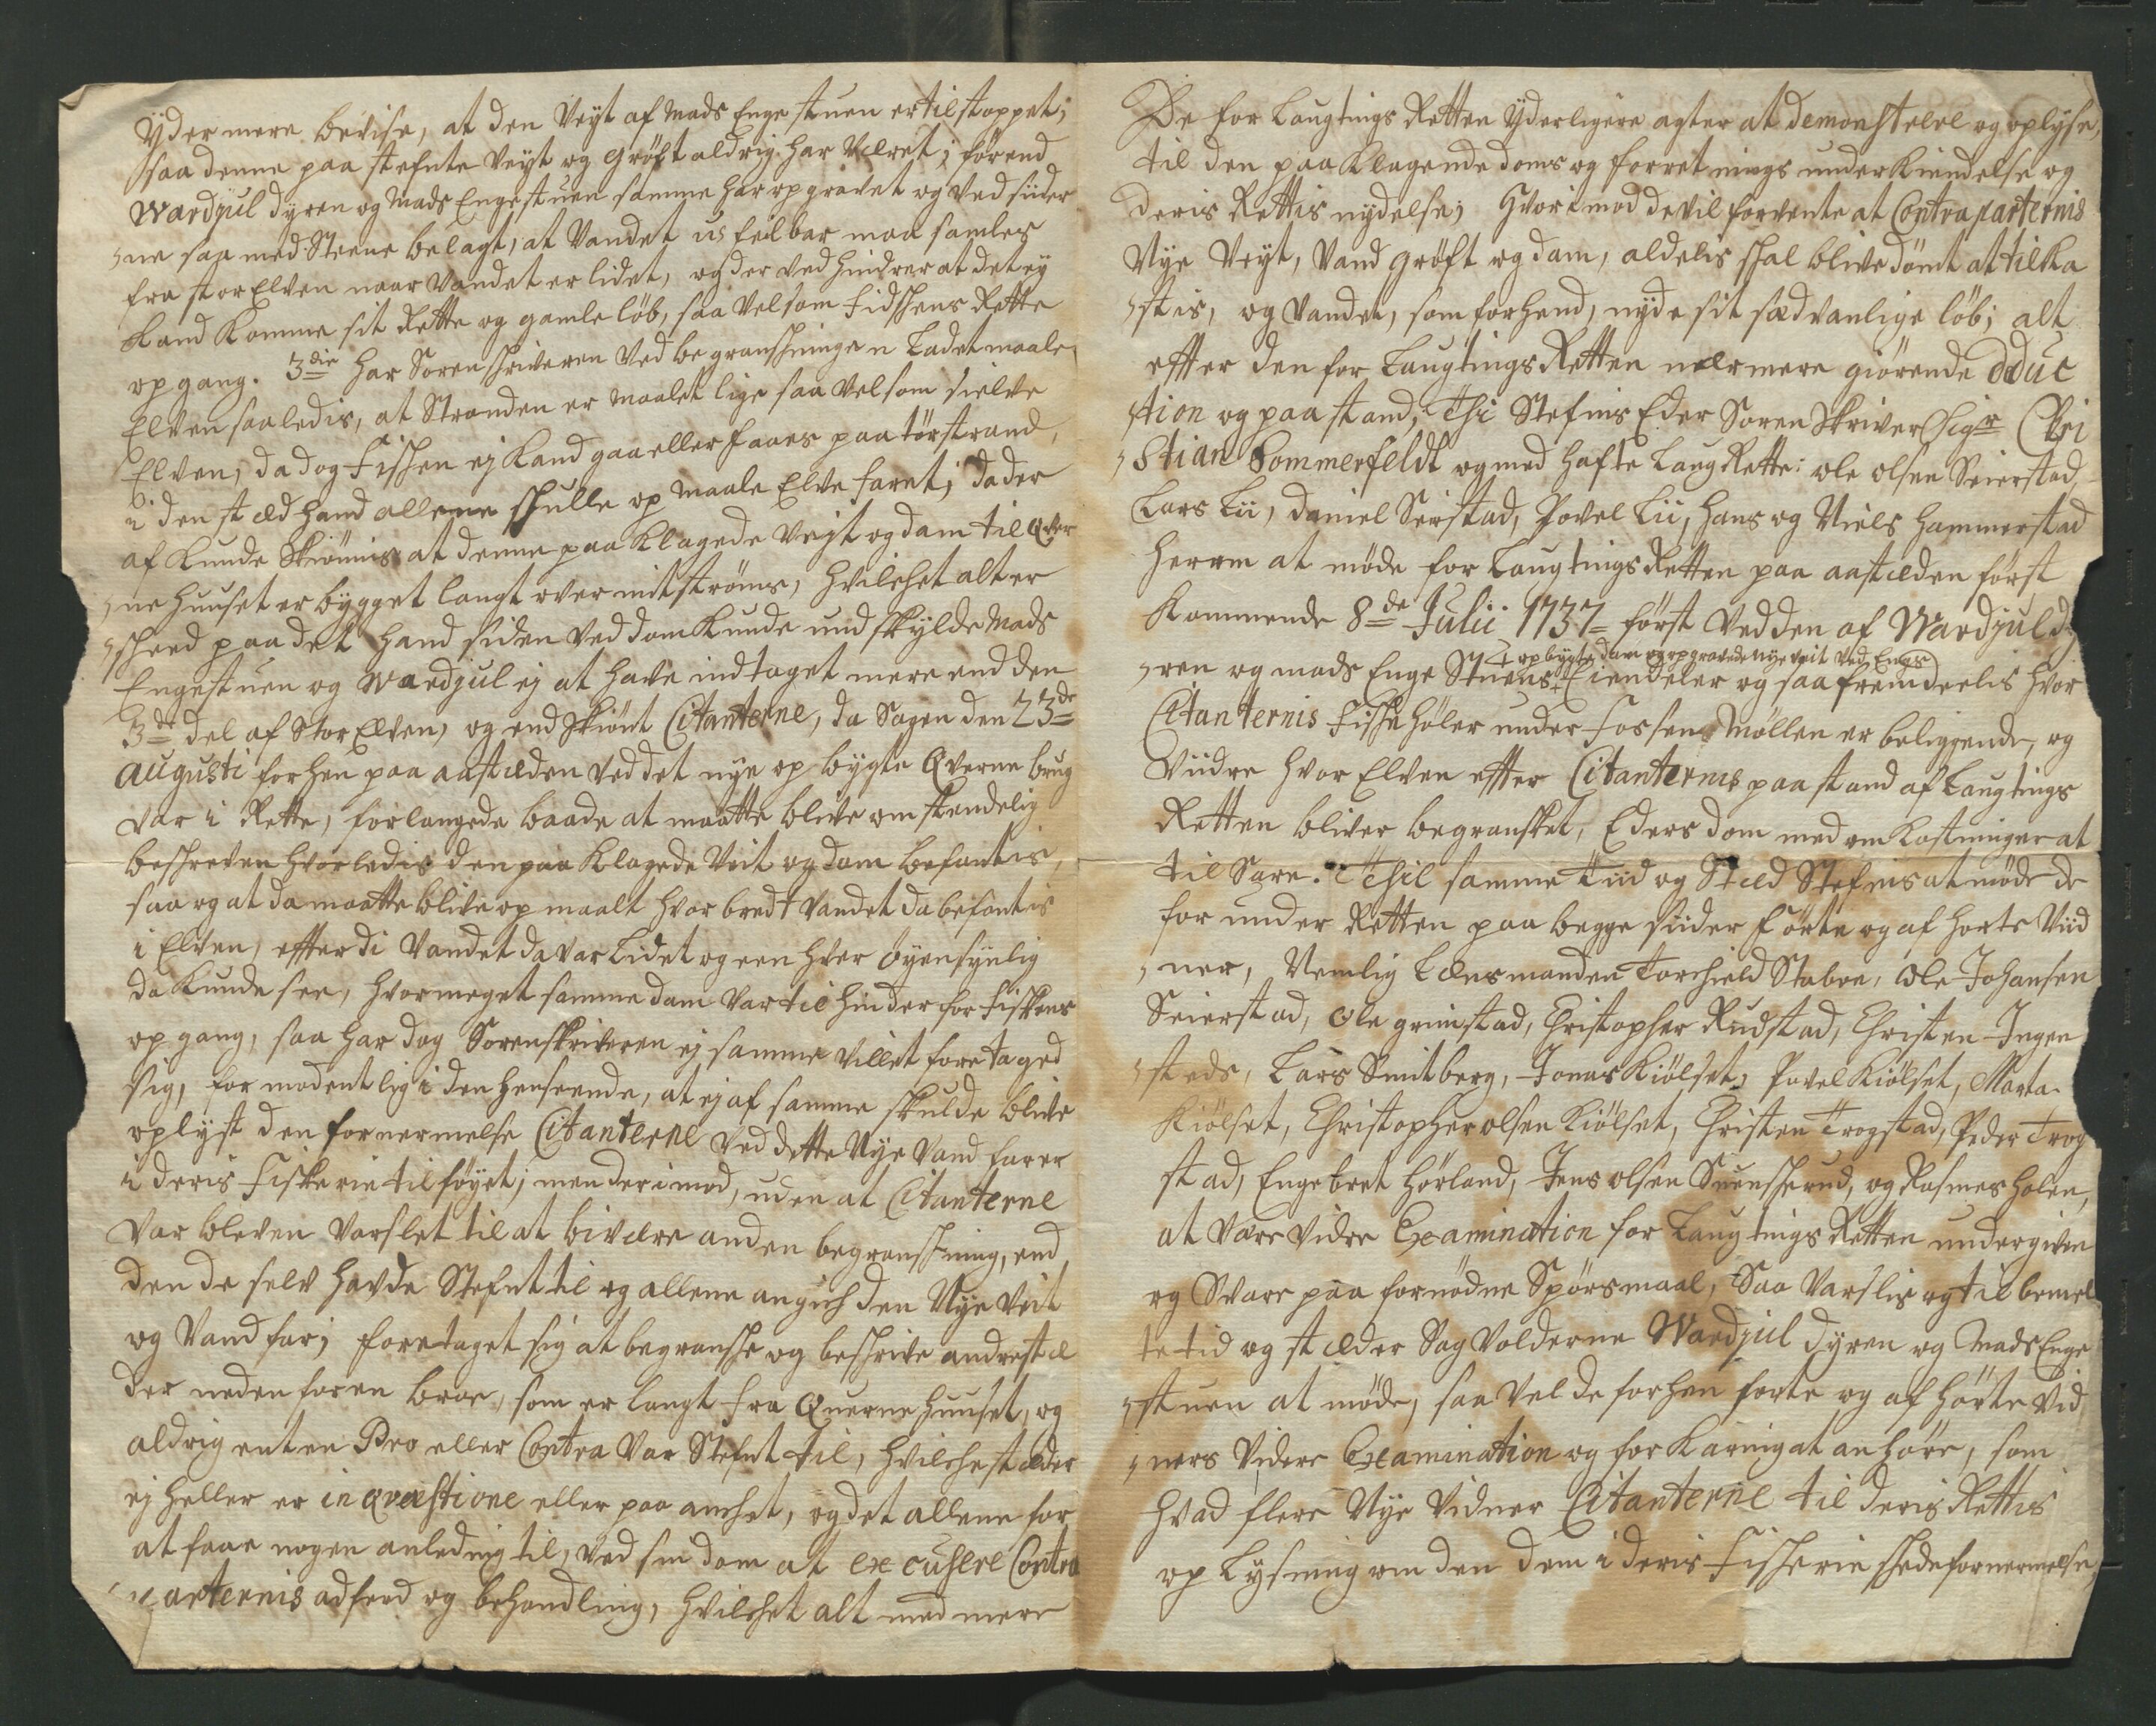 Ydermere bevise, at den Veyt af Mads Enge stuen er tilstoppet;
saa denne paa stefnte Veyt og grøft aldrig har Været; førend
Wardjul dyren og Mads Engestuen samme har opgravet og Ved siider
,ne saa med Steene belagt, at Vandet us feilbar maa samles
fra stor Elven naar Vandet er lidet, og der ved hindrer at det ey
Kand Komme sit Rette og gamle løb, saa Vel som Fidschens Rette
opgang. 3die har Sorenschriveren Ved begranschningen Ladet maale
Elven saaledis, at Stranden er maalet lige saa Velsom sielve
Elven, da dog Fischen ej Kand gaa eller faaes paa tør strand,
i den stæd hand allene schulle op maale Elve faret; da der
af Kunde Skiønnis at denne paa Klagede Veyt og dam til Qver
,ne huuset er bygget langt over mitstrøms, hvilchet alt er
,scheed paa det hand siden Ved dom Kunde undskylde Mads
Engestuen og Wardjul ej at have indtaget mere end den
3de del af Stor Elven, og end skiønt Citanterne, da Sagen den 23de
Augusti forhen paa aastæden Ved det nye op bygte Qverne brug
var i Rette, forlangede baade at maatte blive omstendelig
beschreven hvorledis den paa Klagede Veit og dam befantis,
saa og at da maatte blive op maalt hvor bredt Vandet da befantis
i Elven, efterdi Vandet da var Lidet og een hver øyensynlig
da Kunde see, hvor meget samme dam Var til hinder for Fiskens
op gang, saa har dog Sorenskriveren ej samme Villet foretaged
sig, formodentlig i den henseende, at ej af samme skulde blive
oplyst den fornermelse Citanterne Ved dette Nye Vand farer
i deris Fiskerie tilføyet; men derimod, uden at Citanterne
Var bleven Varslet til at bivære anden begranschning, end
den de selv havde Stefnt til og allene angich den Nye Veit
og Vand far; foretaget sig at begransche og beschrive andre stæ
der neden for en broe, som er langt fra Querne huuset, og
aldrig enten Pro eller Contra Var Stefnt til, hvilche stæder
ej heller er in qvæstione eller paa anchet, og det allene for
at faae nogen anledning til, Ved sin dom at excusere Contra
parternis adferd og behandling, hvilchet alt med mere
De for Laugtings Retten Yderligere agter at demonstrere og oplyse,
til den paa Klagende doms og forretnings underkiendelse og
deris Rettis nydelse; Hvorimod de vil forvente at Contraparternis
Nye Veyt, Vand grøft og dam, aldelis schal blive dømt at tilka
,stis, og Vandet, som forhend, nyde sit sædvanlige løb; alt
efter den for Laugtings Retten nærmere giørende dduc
tion og paastand; Thi Stefnis Eder Sorenskriver Sigr Chri
,stian Sommerfeldt og med hafte Laug Rette: ole olsen Seierstad,
Lars Lii, Daniel Seirstad, Povel Lii, Hans og Niels Hammerstad
herom at møde for Laugtings Retten paa aastæden først
Kommende 8de Julii 1737 først Ved den af Wardjul dy
+ opbygte dam og opgravede nye veit Ved Enge
,ren og Mads Enge Stuens + Eiendeler og saa fremdeelis hvor
Citanternis Fische høler under Fossens Møllen er beliggende, og
Viidre hvor Elven efter Citanternis paastand af Laugtings
Retten bliver begransket, Eders dom med omkostninger at
til Svare. Thil samme Tiid og Stæd Stefnis at møde de
for under Retten paa begge siider Førte og afhørte Viid
,ner, Nemlig Lænsmanden Torchield Staboe, Ole Johansen
Seierstad, Ole grimstad, Christopher Rudstad, Christen Ingen
,steds, Lars Smitberg, Jonas Kiølset, Povel Kiølset, Marta
Kiølset, Christopher olsen Kiølset, Christen Trogstad, Peder Trog
stad, Engebret Hørland, Jens olsen Svenscherud, og Rasmes Holen,
at Være Videre Examination for Laugtings Retten undergiven
og Svare paa fornødne Spørsmaal, Saa Varslis og til bemel
te tid og stæder Sag Volderne Wardjul dyren og Mads Enge
,stuen at møde, saa Vel de forhen førte og af hørte Vid
,ners Videre Examination og forklaring at anhøre, som
hvad flere Nye Vidner Citanterne til deris Rettis
op Lysning om den dem i deris Fischerie schede fornermelse,